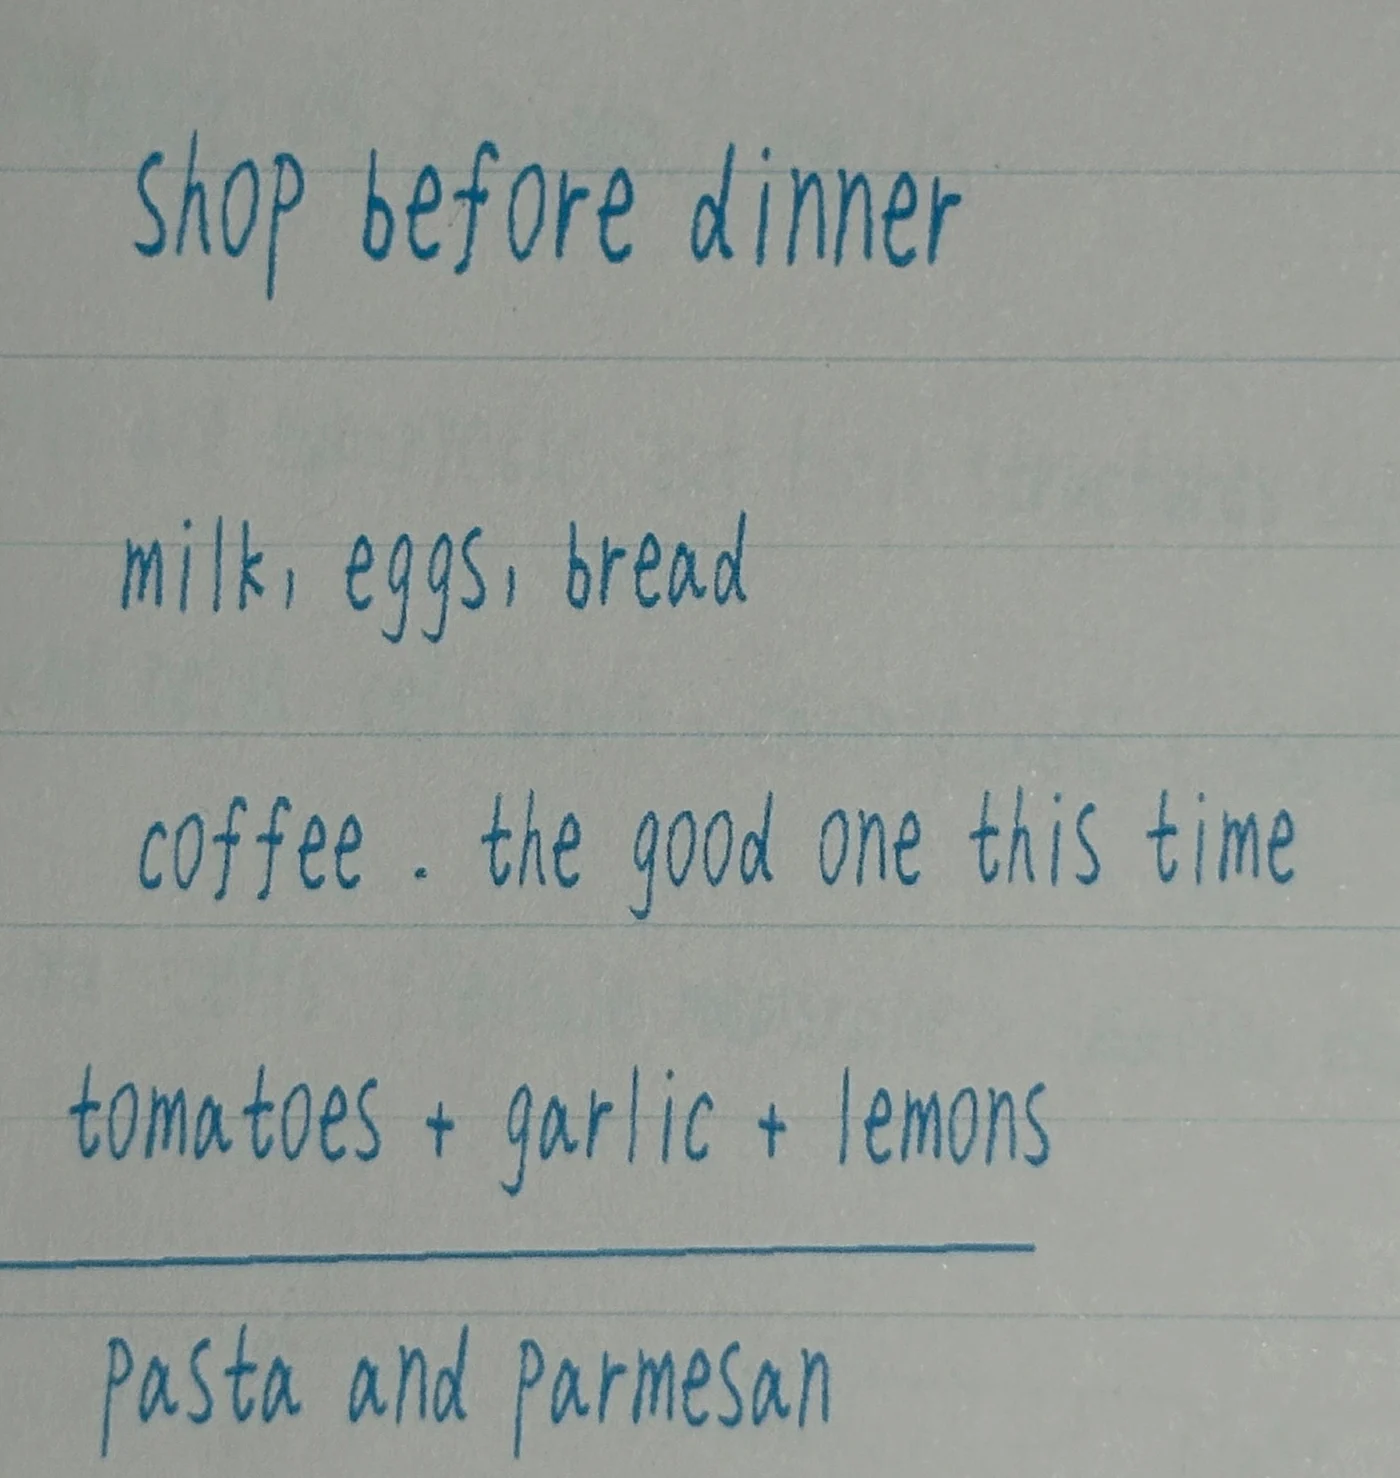 shop before dinner
milk, eggs, bread
coffee . the good one this time
tomatoes + garlic + lemons
pasta and parmesan